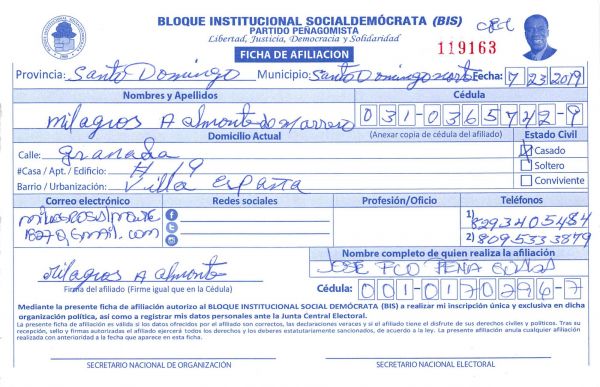 BLOQUE INSTITUCIONAL SOCIALDEMÓCRATA (BIS)
PARTIDO PEÑAGOMISTA
Libertad, Justicia, Democracia y Solidaridad
FICHA DE AFILIACION
119163
Provincia: Santo Domingo Municipio: Santo Domingo norte Fecha: 7 23 2019
Nombres y Apellidos Cédula
Milagros A Almonte de Marrero 031-0365742-9
Domicilio Actual (Anexar copia de cédula del afiliado) Estado Civil
Calle: Granada Casado
#Casa / Apt. / Edificio: # 19 Soltero
Barrio / Urbanización: Villa España Conviviente
Correo electrónico Redes sociales Profesión/Oficio Teléfonos
1) 8293405484
1827@gmail.com 2) 8095333879
Nombre completo de quien realiza la afiliación
JOSE FCO PEÑA
Milagros A Almonte
Firma del afiliado (Firme igual que en la Cédula) Cédula: 001-0170296-7
Mediante la presente ficha de afiliación autorizo al BLOQUE INSTITUCIONAL SOCIAL DEMÓCRATA (BIS) a realizar mi inscripción única y exclusiva en dicha
organización política, así como a registrar mis datos personales ante la Junta Central Electoral.
La presente ficha de afiliación es válida si los datos ofrecidos por el afiliado son correctos, las declaraciones veraces y si el afiliado tiene el disfrute de sus derechos civiles y políticos. Tras su
recepción, sello y firmas autorizadas el afiliado ejercerá todos los derechos y los deberes estatutariamente sancionados, de acuerdo a la ley. La presente afiliación anula cualquier afiliación
realizada con anterioridad a la fecha que aparece en esta ficha.
SECRETARIO NACIONAL DE ORGANIZACIÓN SECRETARIO NACIONAL ELECTORAL